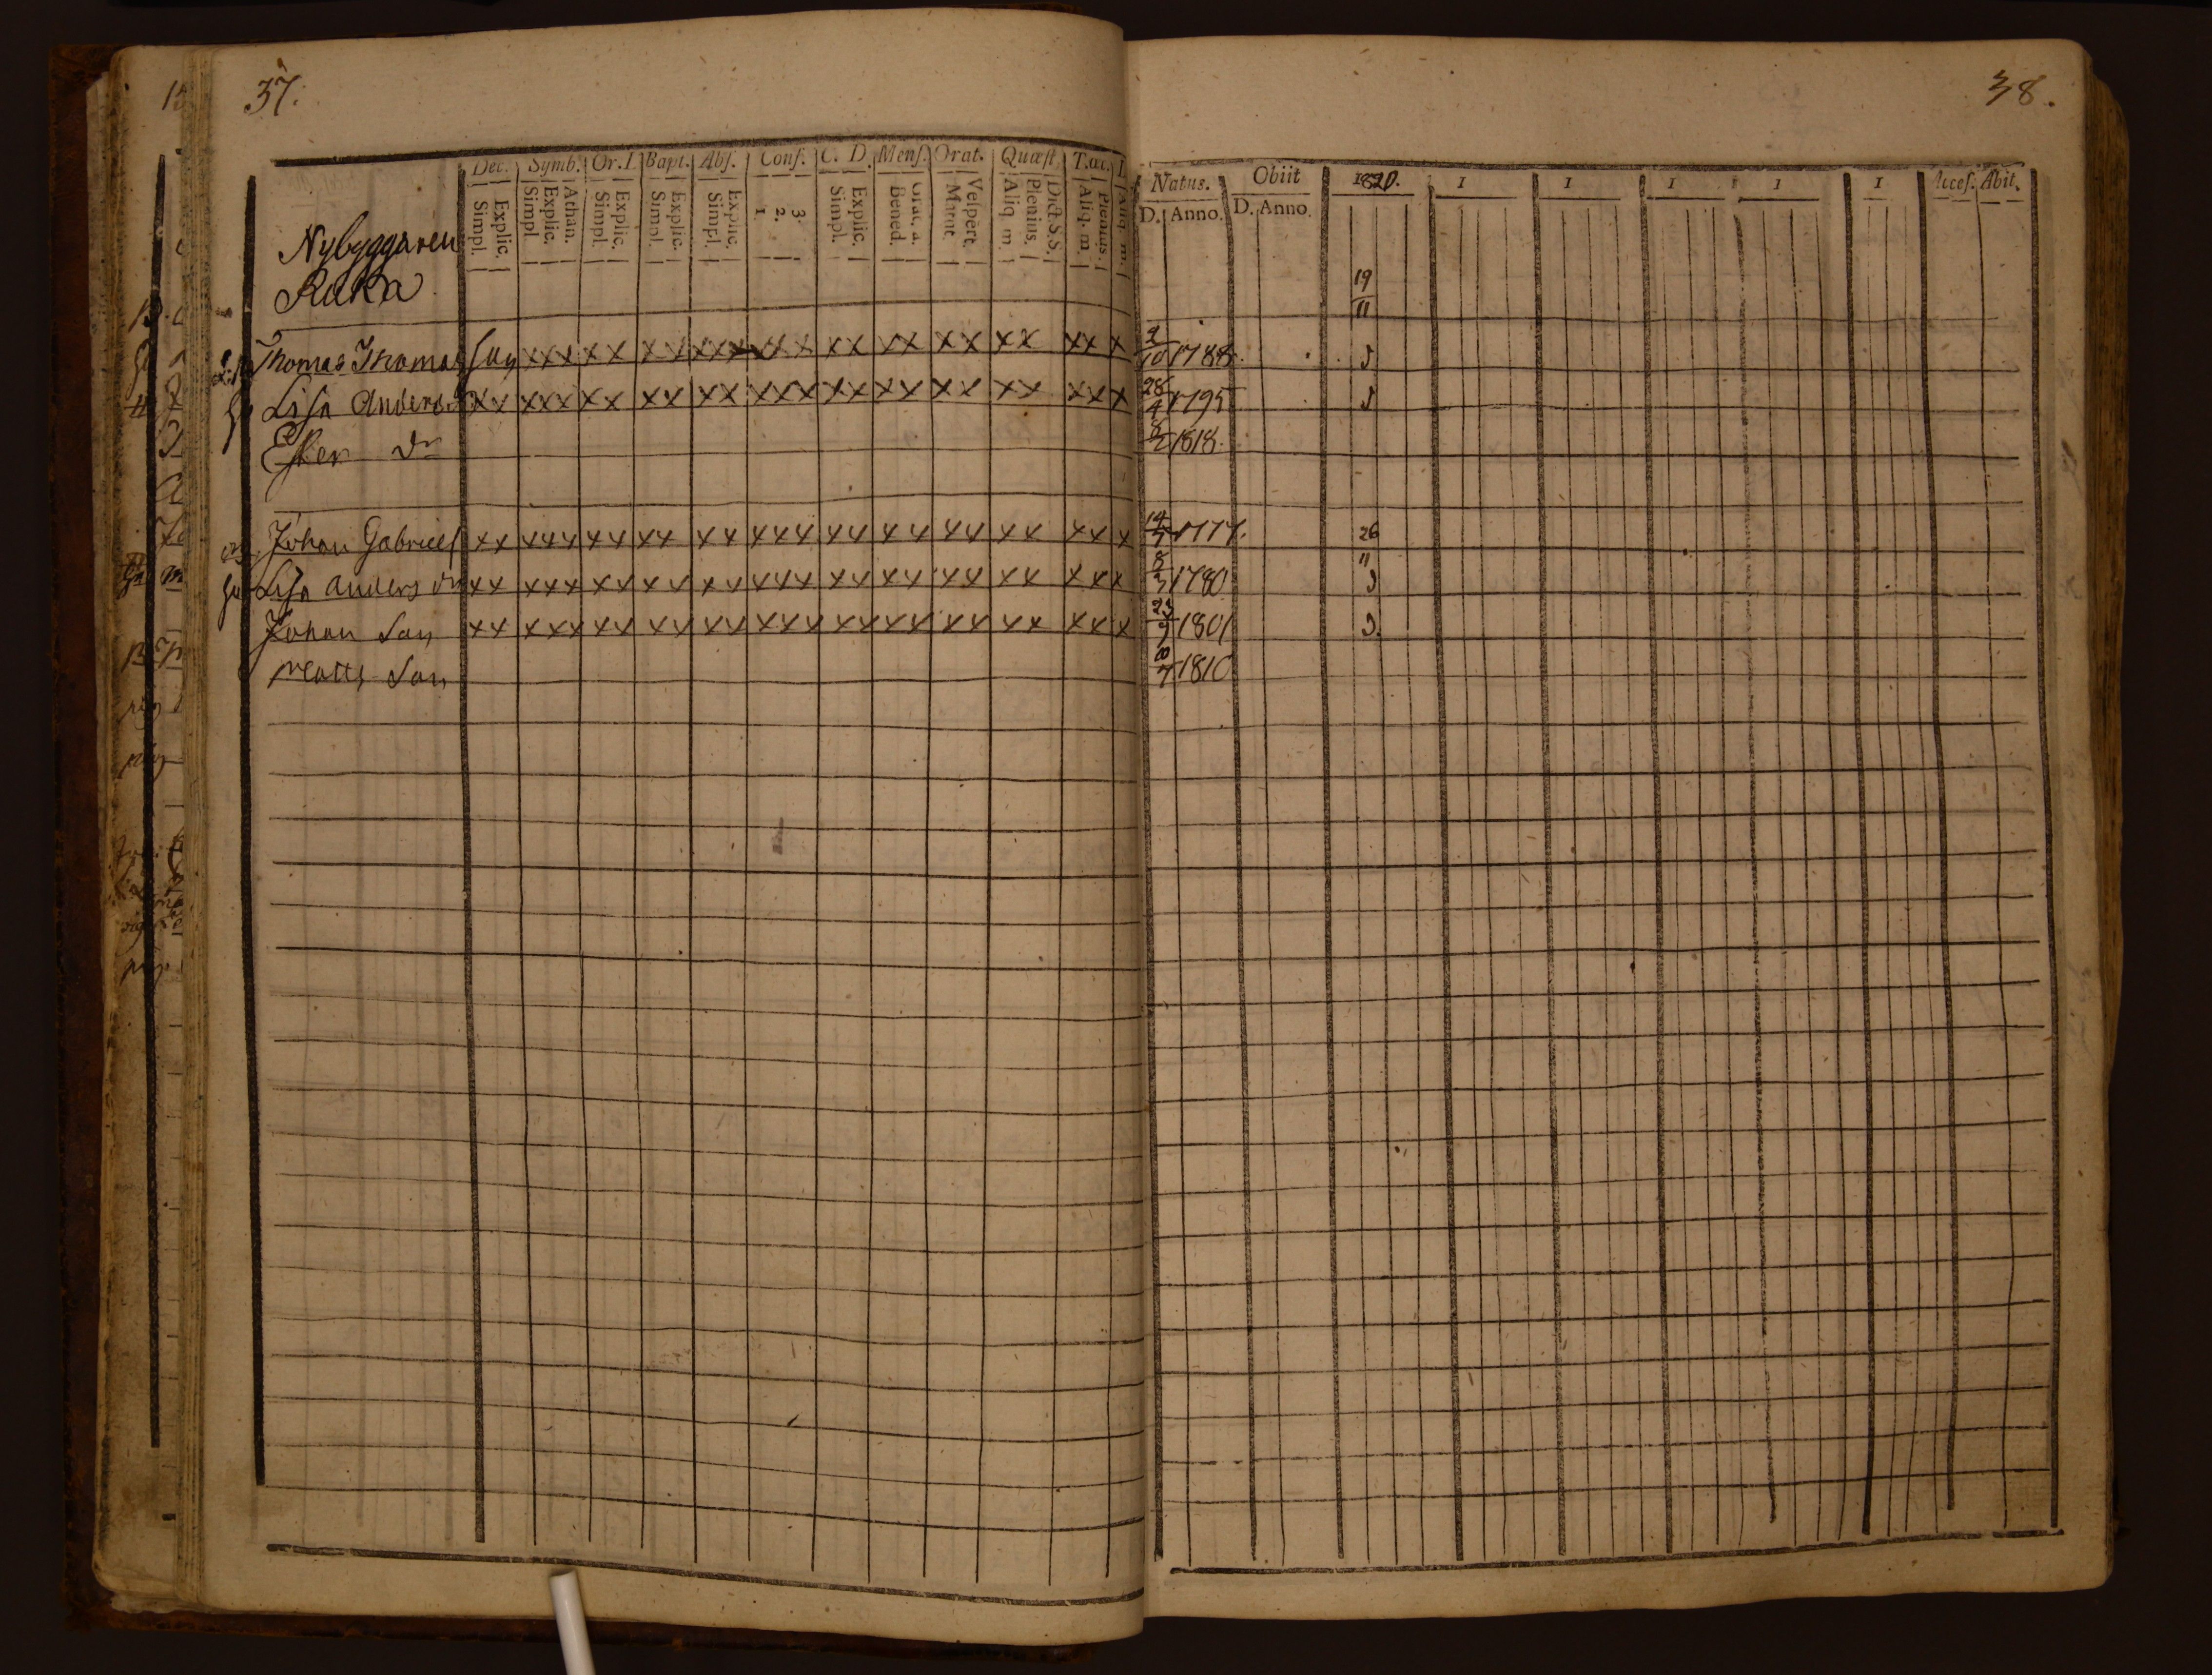 37.
38.
Dec. Symb. Or. D. Bapt. Abs. Conf. C. D. Mens. Orat. Quæst. T. œc.
Natus. Obiit 1820. 1 1 1 1 1 Acces. Abit.
Explic. Simpl. Athan. Explic. Simpl. Explic. Simpl. Explic. Simpl. Explic. Simpl. 3. 2. 1 Explic. Simpl. Grat. a. Bened. Vespert. Matut. Dict. S.S. Plenius. Aliq. m. Plenius. Aliq. m. Aliq. m.
D. Anno. D. Anno.
Nybyggaren
Ruka
19
11
Thomas Thomas Son xxx xx xx xxx xxx xx xx xx xx xx x 10 1788.
Lisa Anders dr xx xxx xx xx xx xxx xx xx xx xx xx x 28/4 1795
Ester dr 1818.
Johan Gabriels xx xxx xx xx xx xxx xx xx xx xx xx x 26
11
Lisa Anders dr xx xxx xx xx xx xxx xx xx xx xx xx x 8/3 1780
Johan Son xx xxx xx xx xx xxx xx xx xx xx xx x 23/9 1801
Matts Son 1810